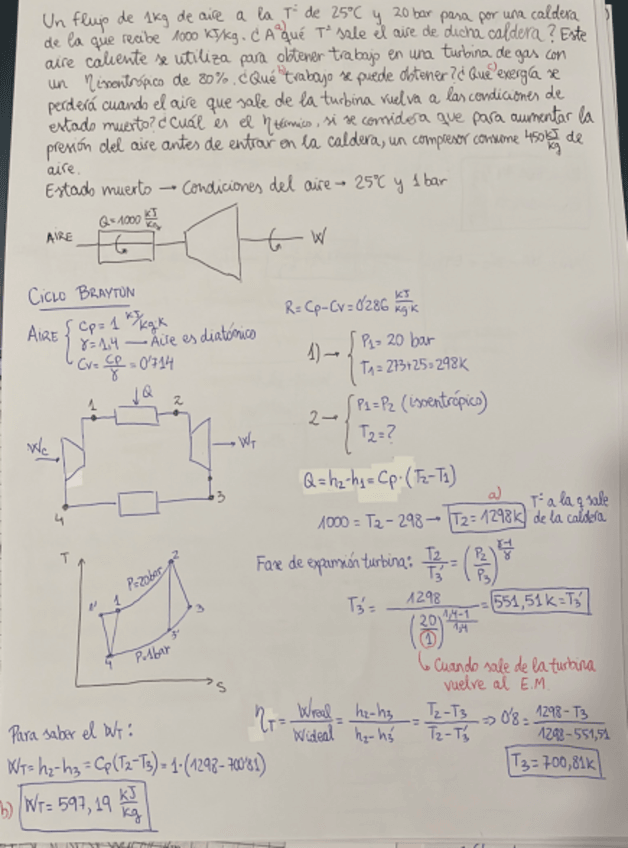 Un flujo de 1Kg de aire a la Tª de 25°C y 20 bar pasa por una caldera
de la que recibe 1000 KJ/Kg. ¿A a) qué Tª sale el aire de dicha caldera? Este
aire caliente se utiliza para obtener trabajo en una turbina de gas con
un ηisoentrópico de 80%. ¿Qué b) trabajo se puede obtener? ¿Qué c) exergía se
perderá cuando el aire que sale de la turbina vuelva a las condiciones de
estado muerto? ¿Cuál es el ηtérmico, si se considera que para aumentar la
presión del aire antes de entrar en la caldera, un compresor consume 450 KJ/Kg de
aire.
Estado muerto → Condiciones del aire → 25°C y 1 bar
Q=1000 KJ/Kg
AIRE
W
CICLO BRAYTON
AIRE { Cp = 1 KJ/KgK
γ = 1,4 — Aire es diatómico
Cv = Cp/γ = 0'714
R = Cp - Cv = 0'286 KJ/KgK
1) → { P1 = 20 bar
T1 = 273+25 = 298K
2 → { P1 = P2 (isoentrópico)
T2 = ?
↓Q
1 2
Wc → → WT
4 3
Q = h2-h1 = Cp·(T2-T1)
1000 = T2 - 298 → T2 = 1298K
a) Tª a la q sale
de la caldera
T
2
P=20bar
1' 1
3
3'
4
P=1bar
S
Fase de expansión turbina: T2/T3' = (P2/P3)^(γ-1/γ)
T3' = 1298/(20/1)^(1,4-1/1,4) = 551,51K = T3'
↳ Cuando sale de la turbina
vuelve al E.M.
Para saber el WT:
WT = h2-h3 = Cp(T2-T3) = 1·(1298-700'81)
b) WT = 597,19 KJ/Kg
ηT = Wreal/Wideal = h2-h3/h2-h3' = T2-T3/T2-T3' ⇒ 0'8 = 1298-T3/1298-551,51
T3 = 700,81K